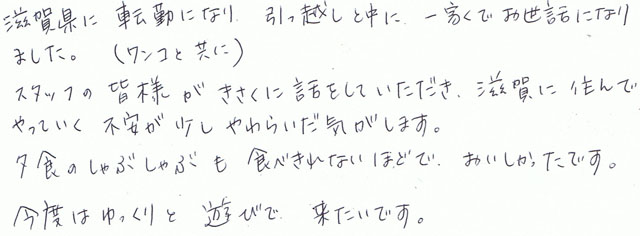 滋賀県に 転勤になり 引っ越しと中に 一泊くでお世話になり
ました。 (ワンコと共に)
スタッフの 皆様が きさくに 話をしていただき、滋賀に 住んで
やっていく 不安が少し やわらいだ気がします。
夕食のしゃぶしゃぶも 食べきれないほどで、おいしかったです。
今度は ゆっくりと 遊びで 来たいです。